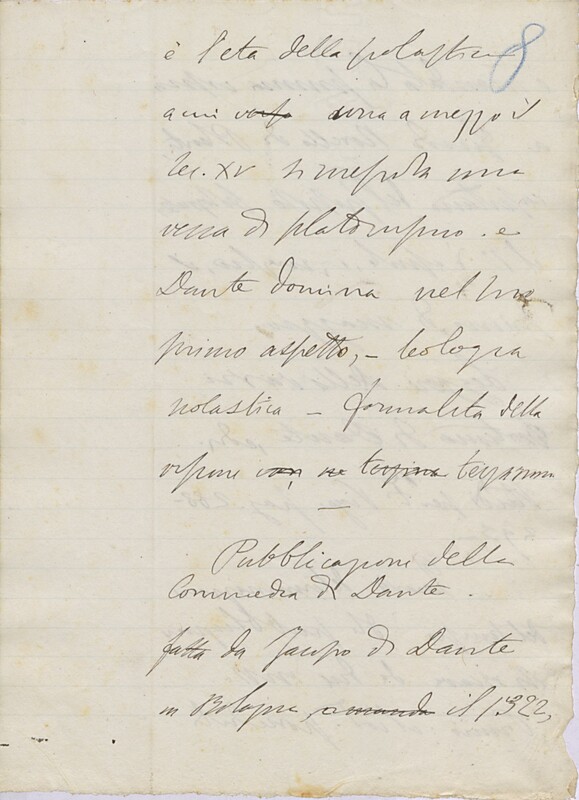 8
è l'età della scolastica
a cui verso circa a mezzo il
sec. XV si mescola una
vena di platonismo. e
Dante domina nel suo
primo aspetto, — teologia
scolastica — formalità della
visione terzarima
—
Pubblicazione della
Commedia di Dante.
fatta da Jacopo di Dante
in Bologna, il 1322,